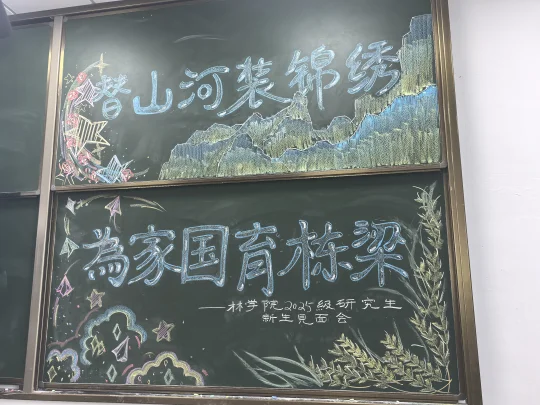 替山河装锦绣
為家国育栋梁
——林学院2025级研究生
新生见面会